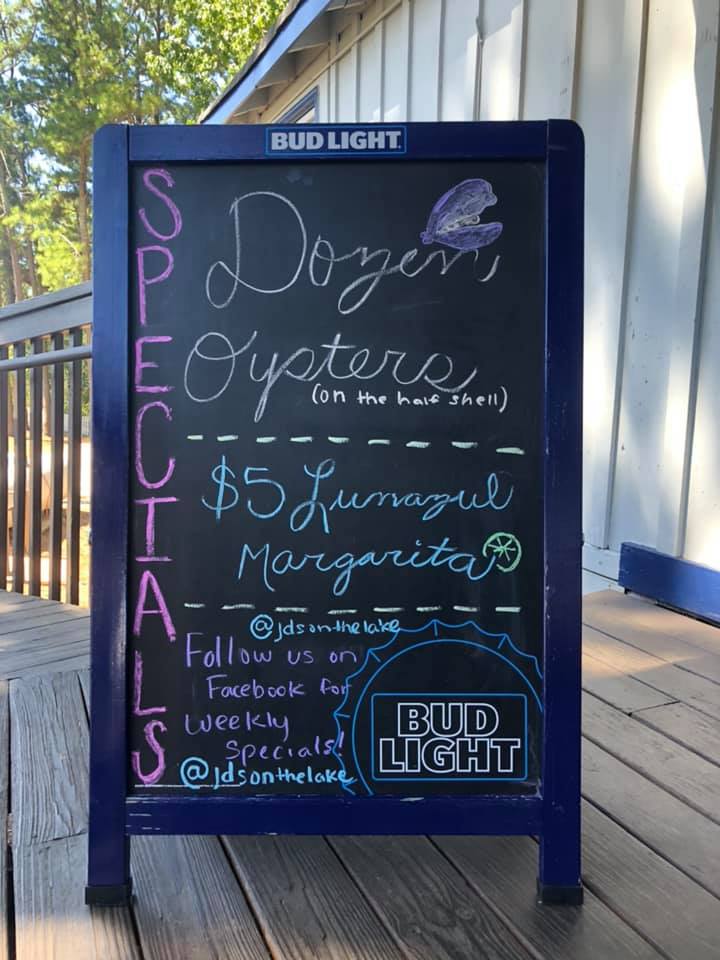 BUD LIGHT
SPECIALS
Dozen
Oysters
(on the half shell)
$5 Lunazul
Margarita
@jdsonthelake
Follow us on
Facebook for
weekly
specials!
@jdsonthelake
BUD
LIGHT